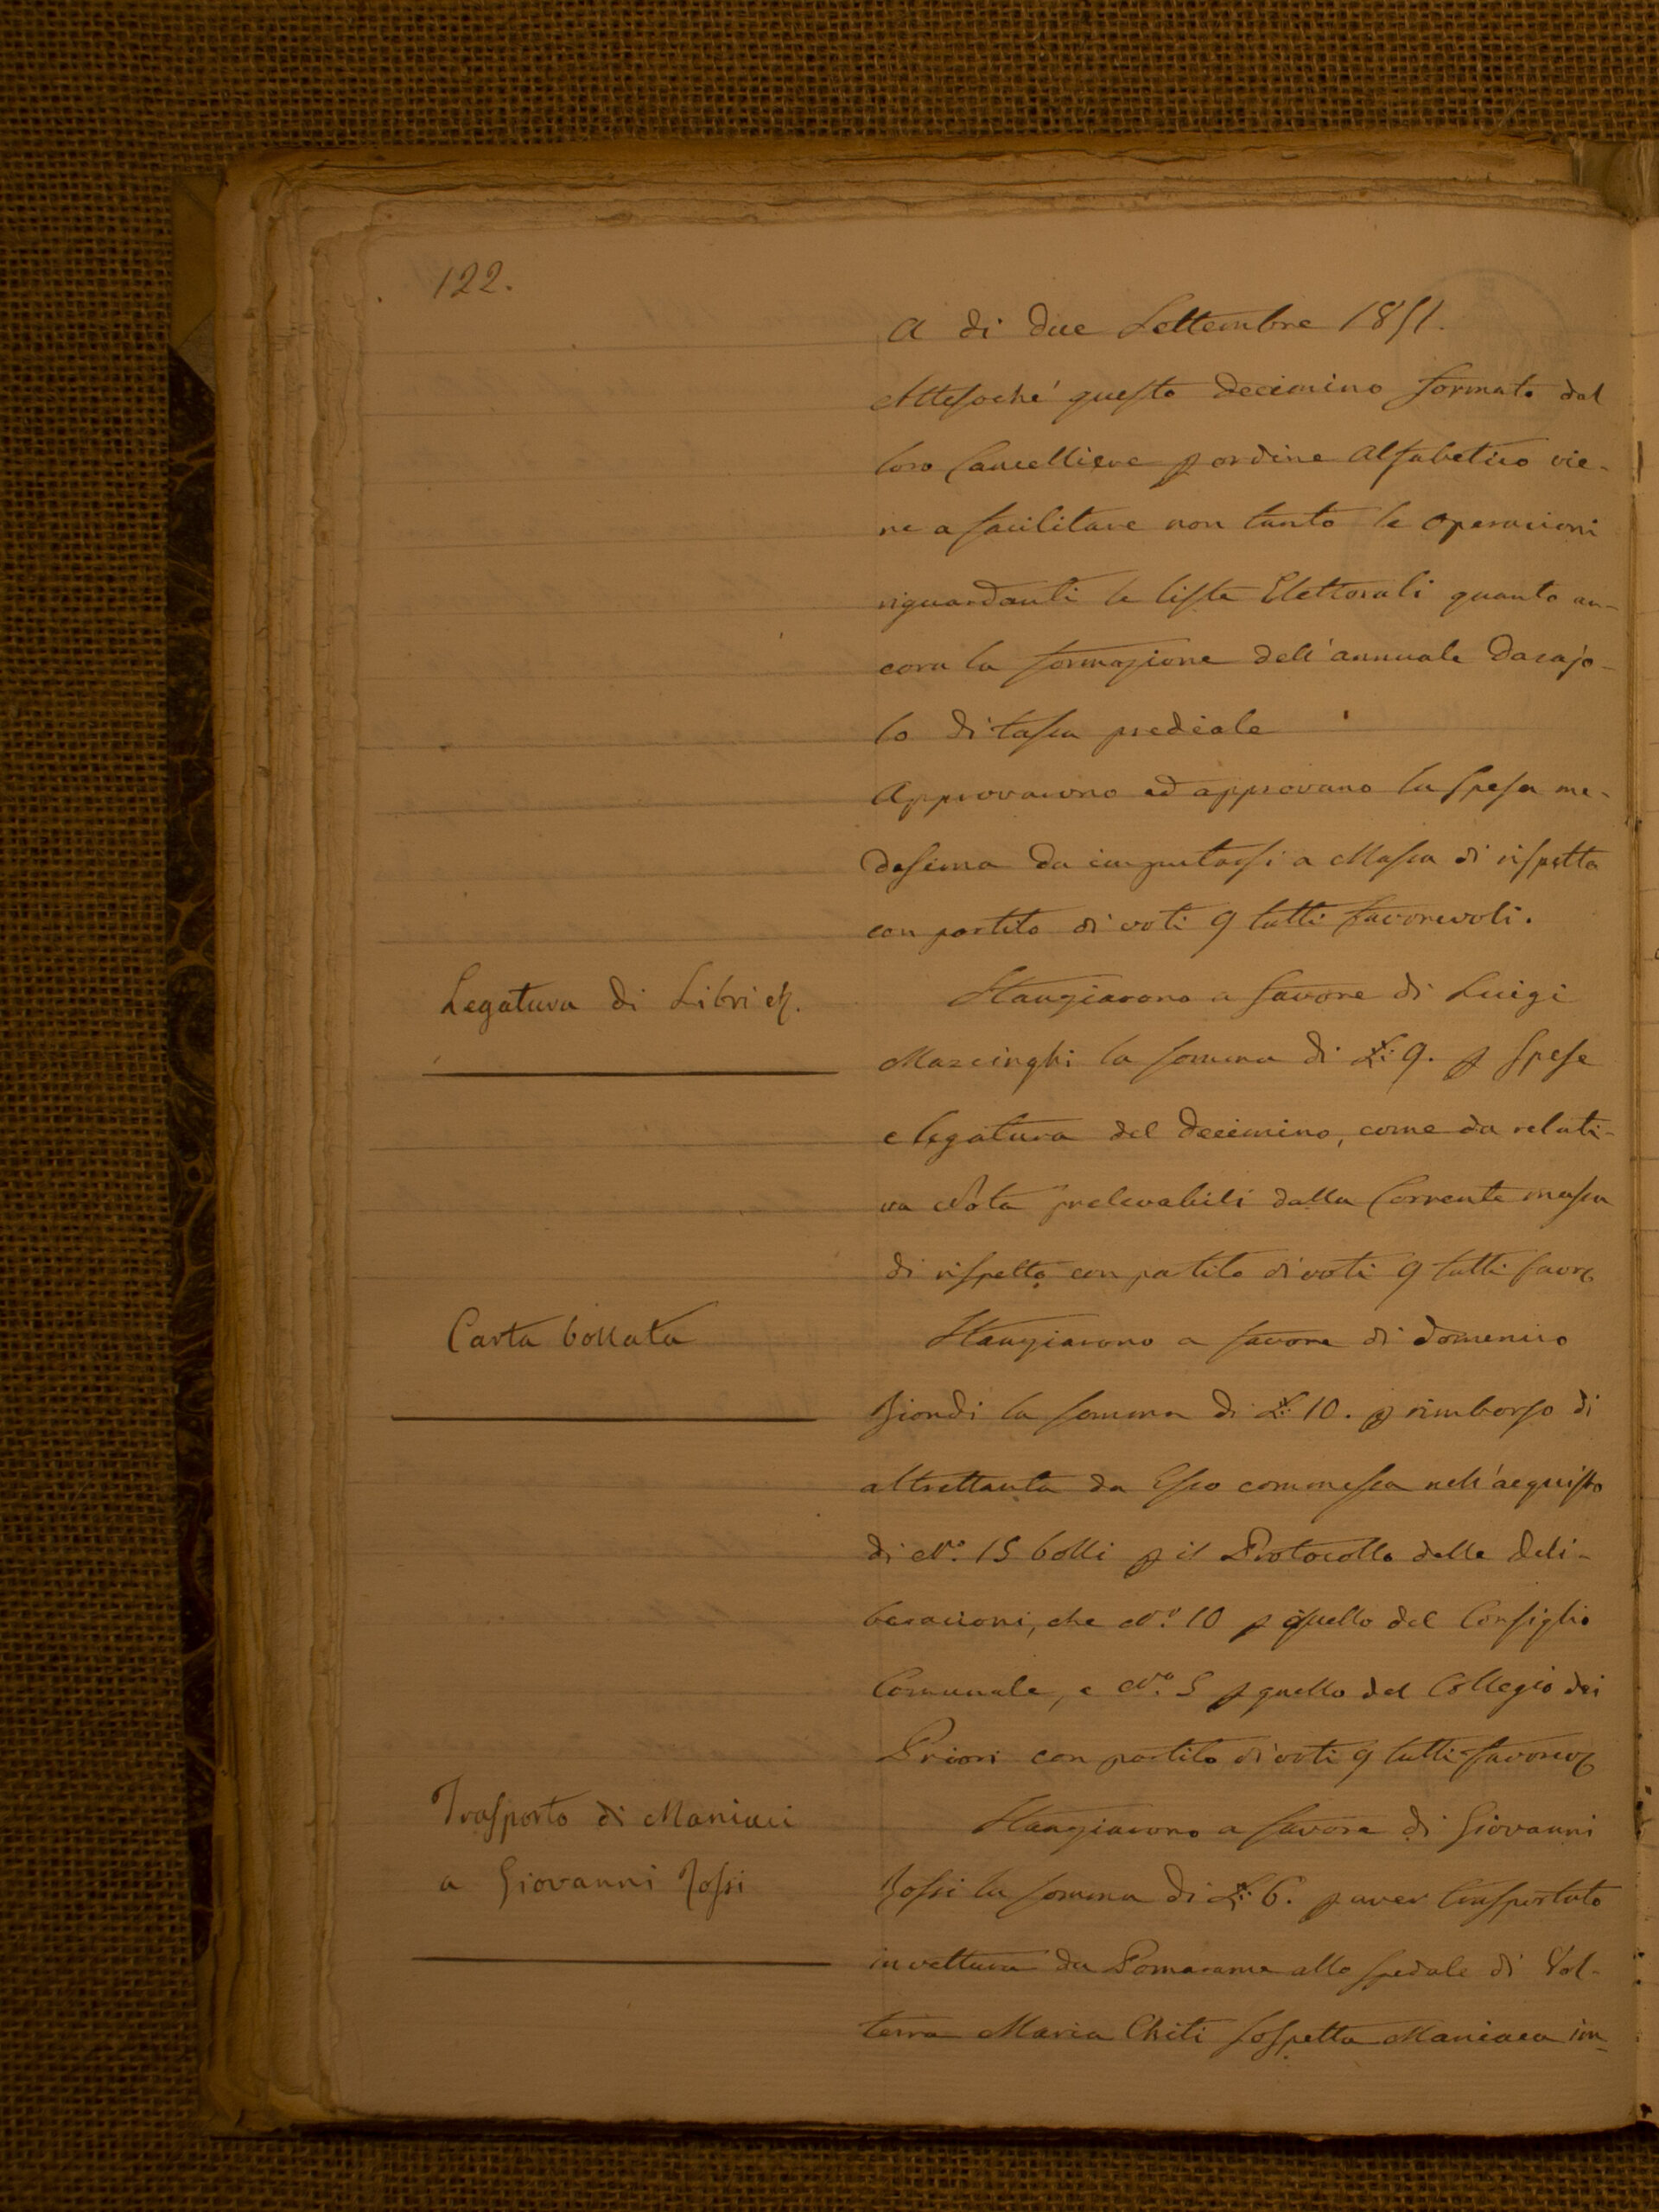 122.
A di due Settembre 1851.
Attesochè questo decimino formato dal
loro Cancelliere p ordine Alfabetico vie-
ne a facilitare non tanto le operazioni
riguardanti le liste Elettorali quanto an-
cora la formazione dell'annuale Dazajo-
lo di tassa prediale
Approvarono ed approvano la spesa me-
desima da imputarsi a Massa di rispetto
con partito di voti 9 tutti favorevoli.
Legatura di Libri
Stanziarono a favore di Luigi
Mazzinghi la somma di £: 9. p Spese
e legatura del decimino, come da relati-
va Nota prelevabili dalla Corrente massa
di rispetto con partito di voti 9 tutti favor
Carta bollata
Stanziarono a favore di Domenico
Biondi la somma di £: 10. p rimborso di
altrettanta da Esso commessa nell'acquisto
di N.º 15 bolli p il Protocollo delle Deli-
berazioni, che N.º 10 p quello del Consiglio
Comunale, e N.º 5 p quello del Collegio dei
Priori con partito di voti 9 tutti favorev
Trasporto di Maniaci
a Giovanni Rossi
Stanziarono a favore di Giovanni
Rossi la somma di £: 6. p aver trasportato
in vettura da Pomarance allo spedale di Vol-
terra Maria Chiti sospetta Maniaca im-